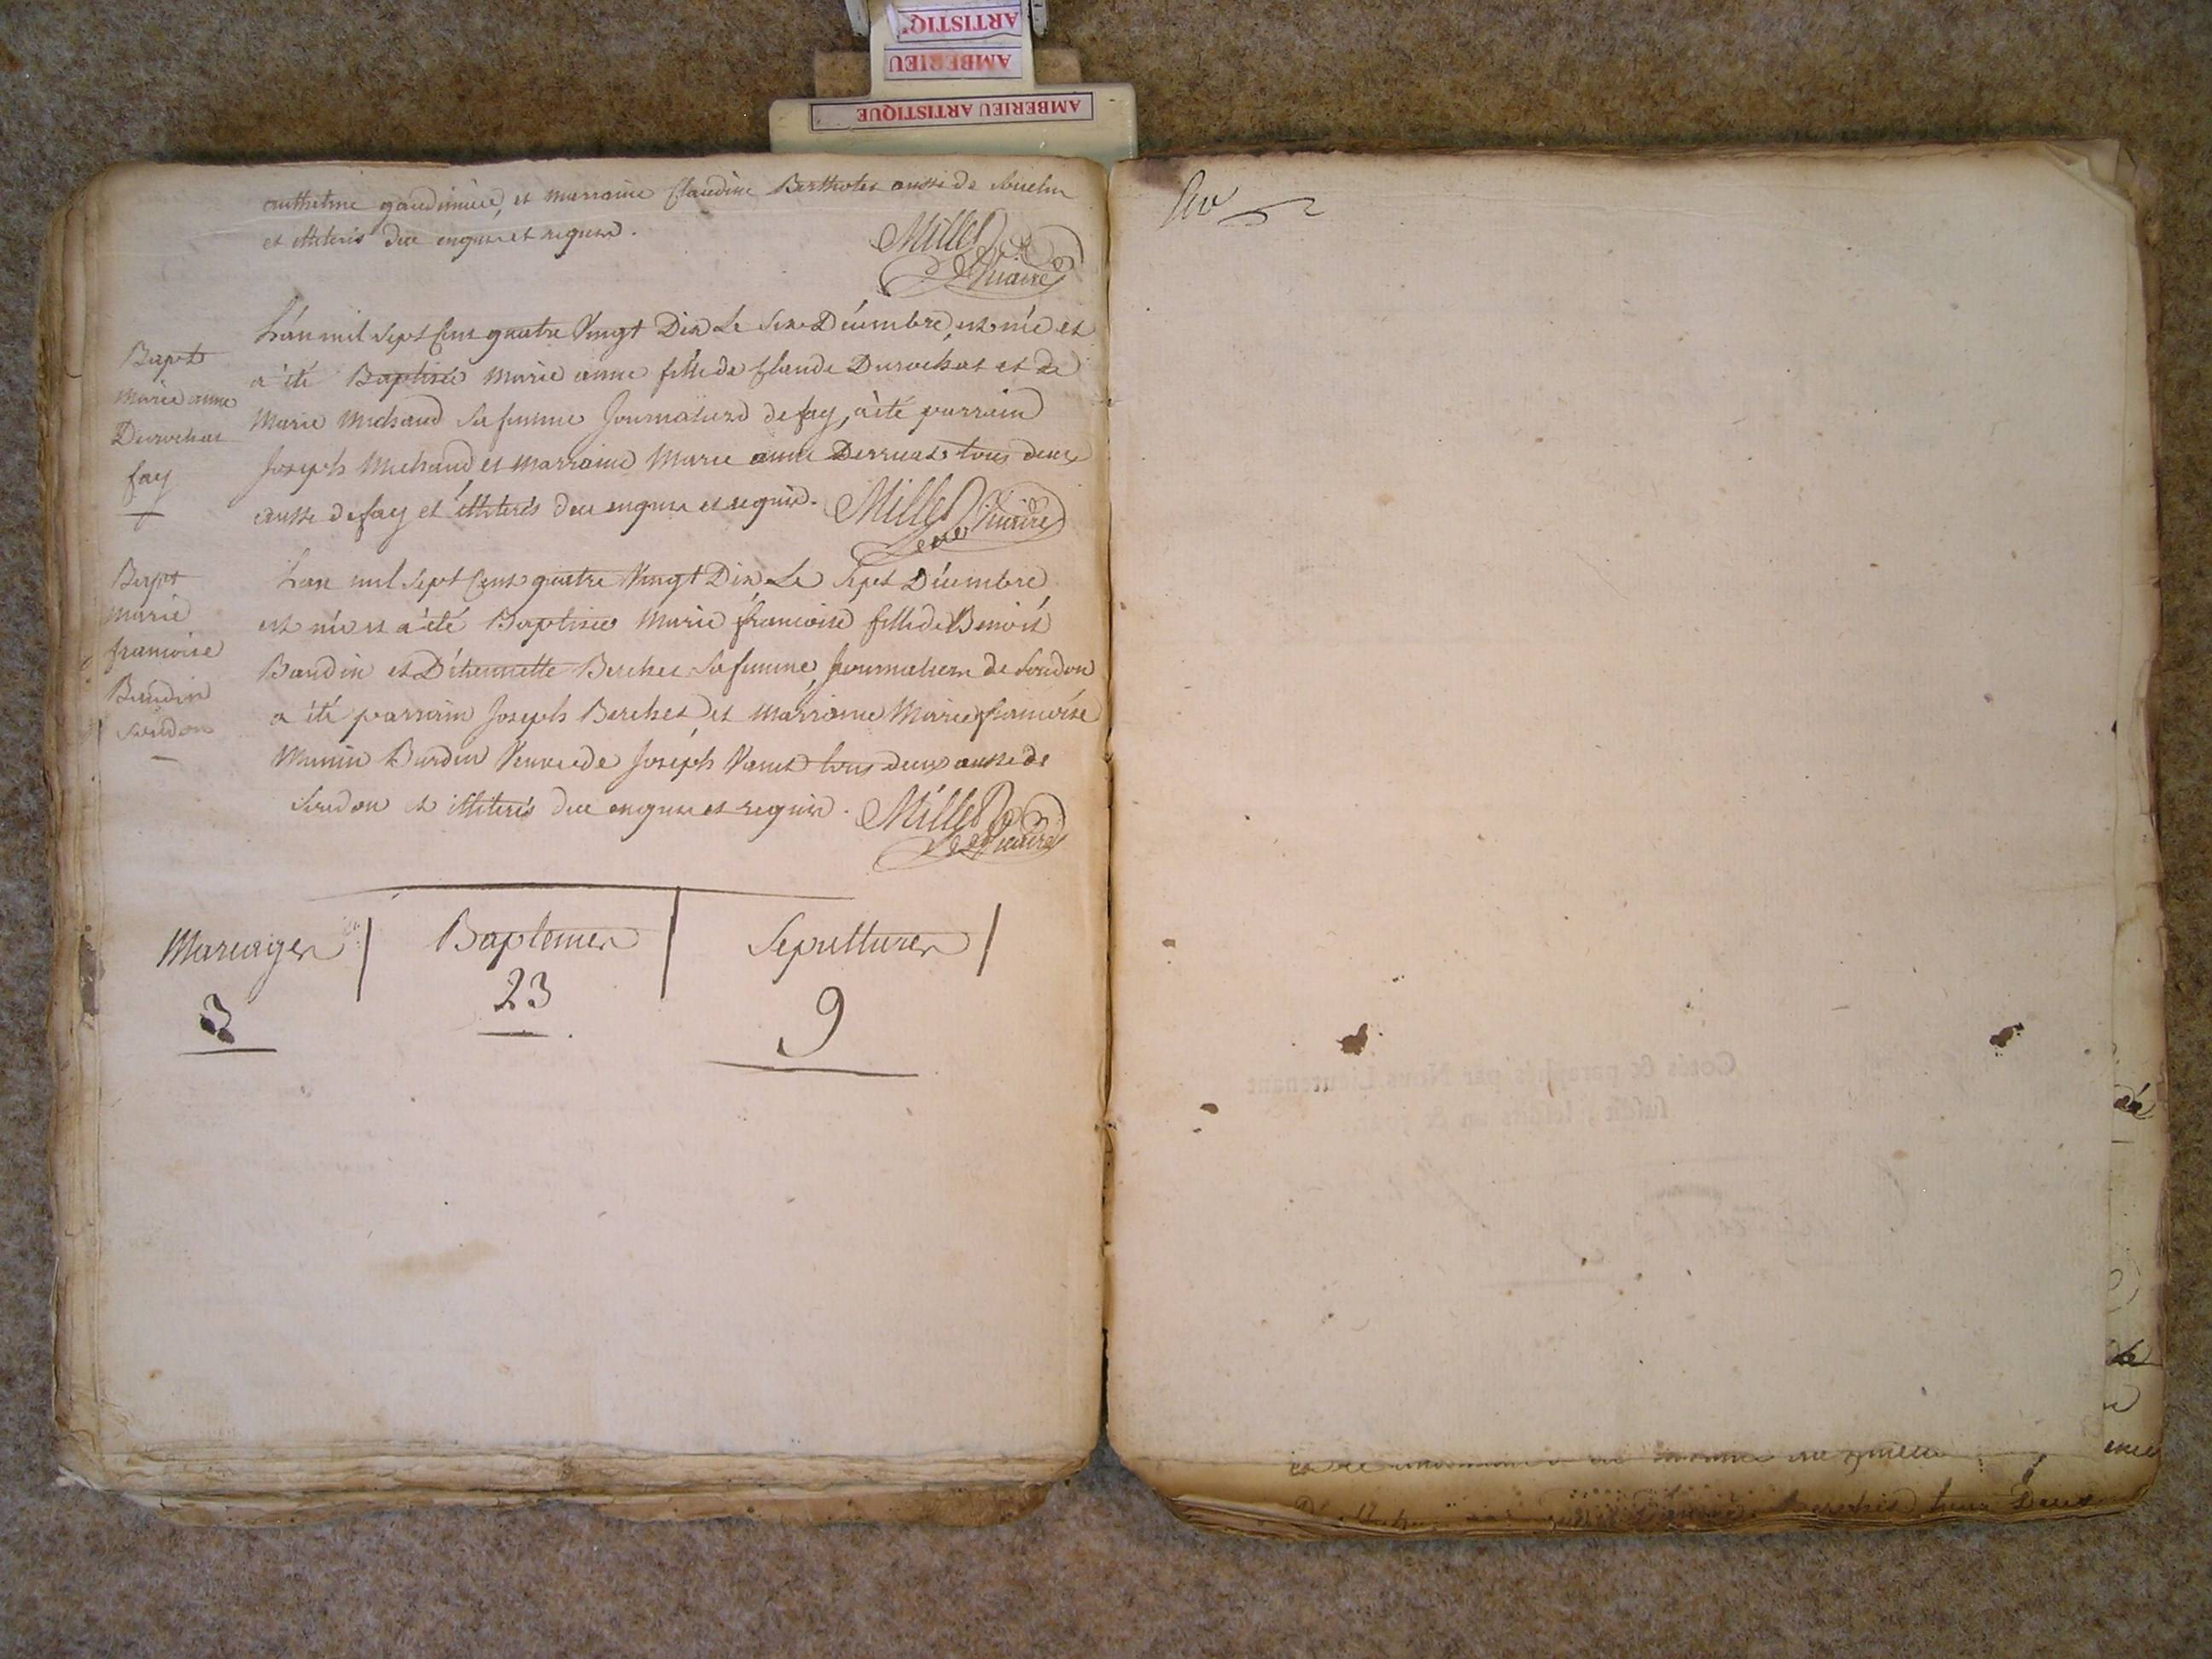 ARTISTIQ'
AMBERIEU
AMBERIEU ARTISTIQUE
anthelme gaudiniere, et marraine Claudine Bertholet aussi de
et illiterés due enquis et requis.
Millet
Vicaire
L'an mil sept Cens quatre Vingt Dix Le six Décembre, est née et
a été Baptisée Marie anne fille de Claude Durochat et de
Marie Michaud sa femme Journaliers de fay, a été parrain
Joseph Michaud et marraine Marie anne tous deux
aussi de fay et illiterés due enquis et requis. Millet Vicaire
Bapt
Marie anne
Durochat
fay
L'an mil sept Cens quatre Vingt Dix Le sept Décembre
est née et a été Baptisée Marie françoise fille de Benoit
Baudin et D'étiennette Berchet sa femme, Journaliers de Soudon
a été parrain Joseph Berchet et marraine Marie françoise
Burdin Veuve de Joseph tous deux aussi de
Soudon et illiterés due enquis et requis. Millet
Vicaire
Bapt
Marie
françoise
Baudin
Soudon
Mariages | Baptemes | Sepultures |
3 23 9
Cotés & paraphés par Nous Lieutenant
susdit, lesdits an & jour
Deux